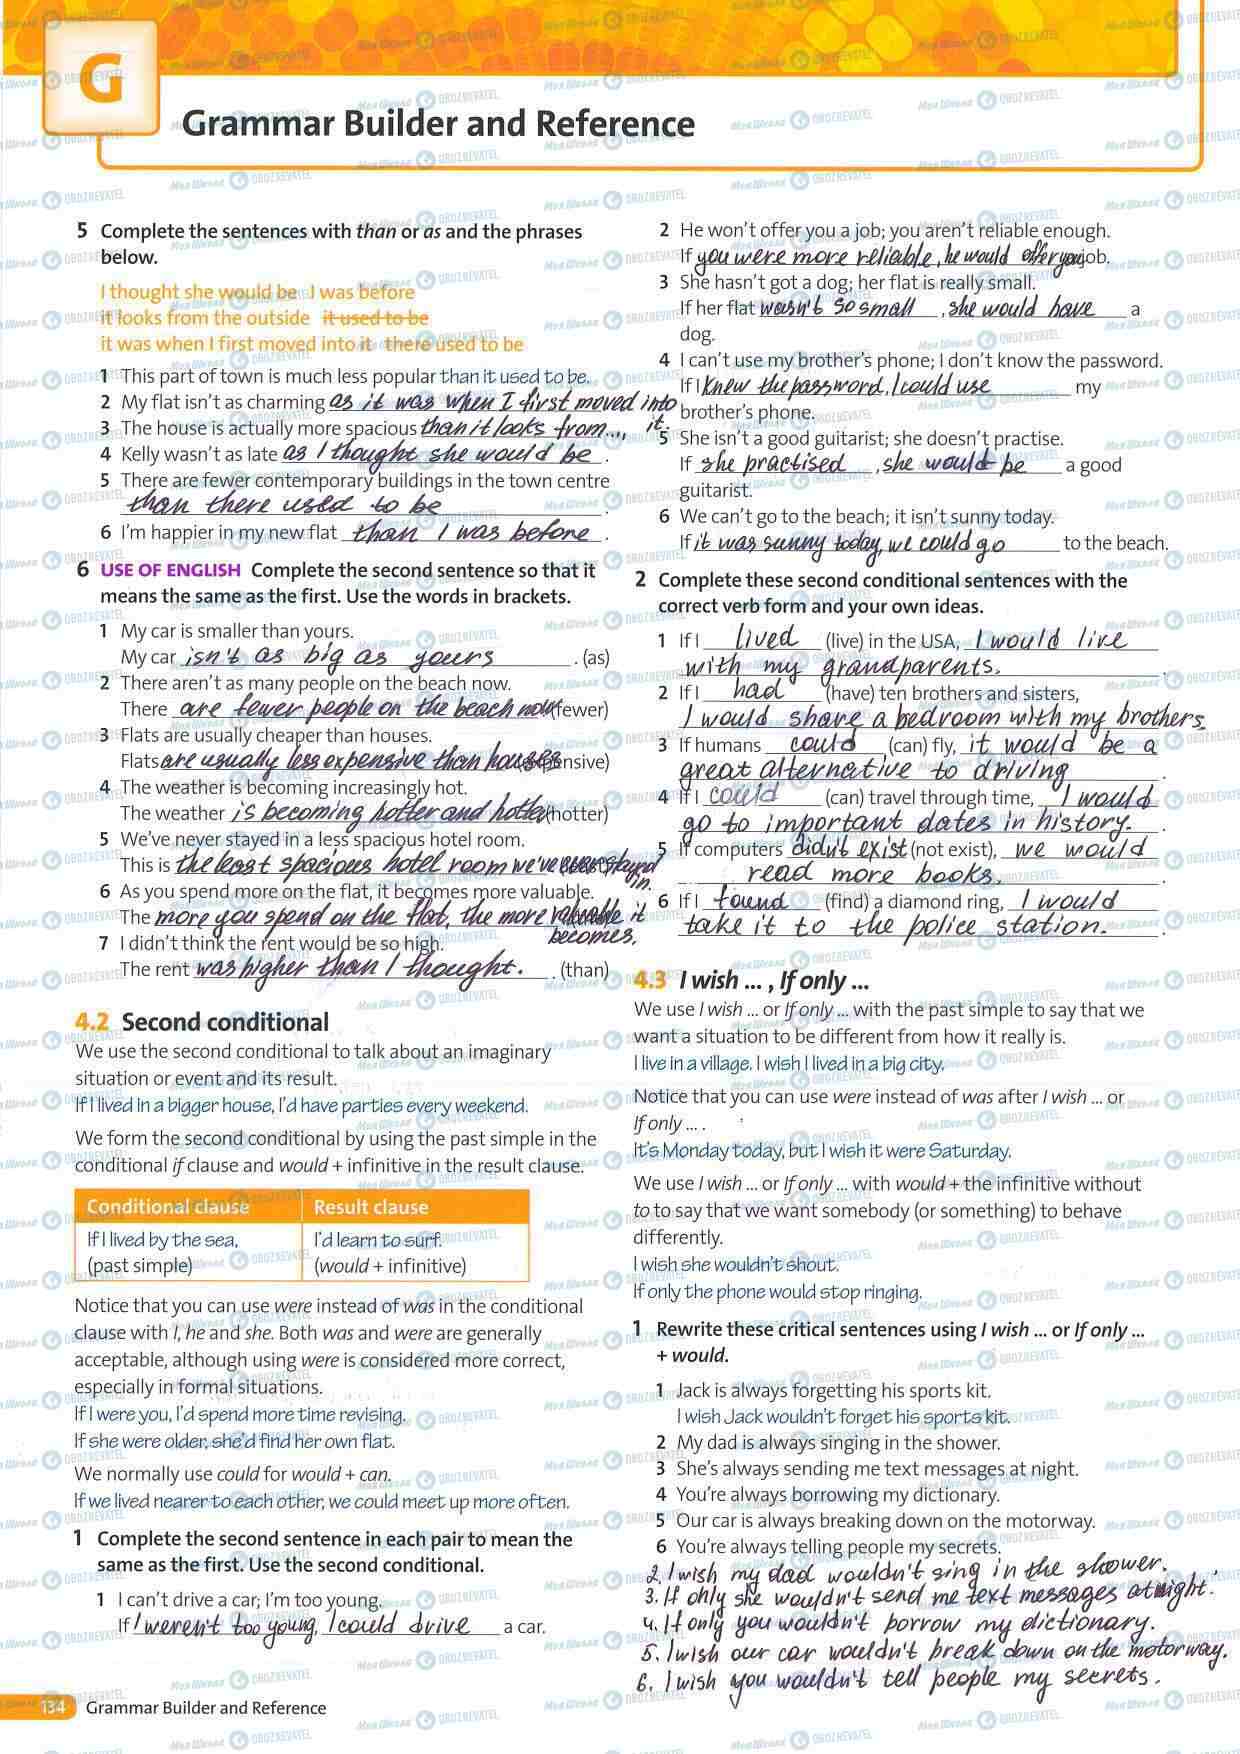 G
Grammar Builder and Reference
5 Complete the sentences with than or as and the phrases
below.
I thought she would be I was before
it looks from the outside it used to be
it was when I first moved into it there used to be
1 This part of town is much less popular than it used to be.
2 My flat isn't as charming as it was when I first moved into
it.
3 The house is actually more spacious than it looks from...,
4 Kelly wasn't as late as I thought she would be.
5 There are fewer contemporary buildings in the town centre
than there used to be.
6 I'm happier in my new flat than I was before.
6 USE OF ENGLISH Complete the second sentence so that it
means the same as the first. Use the words in brackets.
1 My car is smaller than yours.
My car isn't as big as yours. (as)
2 There aren't as many people on the beach now.
There are fewer people on the beach now (fewer)
3 Flats are usually cheaper than houses.
Flats are usually less expensive than houses (expensive)
4 The weather is becoming increasingly hot.
The weather is becoming hotter and hotter (hotter)
5 We've never stayed in a less spacious hotel room.
This is the least spacious hotel room we've ever stayed
in.
6 As you spend more on the flat, it becomes more valuable.
The more you spend on the flat, the more valuable it
becomes.
7 I didn't think the rent would be so high.
The rent was higher than I thought. (than)
4.2 Second conditional
We use the second conditional to talk about an imaginary
situation or event and its result.
If I lived in a bigger house, I'd have parties every weekend.
We form the second conditional by using the past simple in the
conditional if clause and would + infinitive in the result clause.
Conditional clause Result clause
If I lived by the sea, I'd learn to surf.
(past simple) (would + infinitive)
Notice that you can use were instead of was in the conditional
clause with I, he and she. Both was and were are generally
acceptable, although using were is considered more correct,
especially in formal situations.
If I were you, I'd spend more time revising.
If she were older, she'd find her own flat.
We normally use could for would + can.
If we lived nearer to each other, we could meet up more often.
1 Complete the second sentence in each pair to mean the
same as the first. Use the second conditional.
1 I can't drive a car; I'm too young.
If I weren't too young, I could drive a car.
2 He won't offer you a job; you aren't reliable enough.
If you were more reliable, he would offer you job.
3 She hasn't got a dog; her flat is really small.
If her flat wasn't so small, she would have a
dog.
4 I can't use my brother's phone; I don't know the password.
If I knew the password, I could use my
brother's phone.
5 She isn't a good guitarist; she doesn't practise.
If she practised, she would be a good
guitarist.
6 We can't go to the beach; it isn't sunny today.
If it was sunny today, we could go to the beach.
2 Complete these second conditional sentences with the
correct verb form and your own ideas.
1 If I lived (live) in the USA, I would live
with my grandparents.
2 If I had (have) ten brothers and sisters,
I would share a bedroom with my brothers.
3 If humans could (can) fly, it would be a
great alternative to driving.
4 If I could (can) travel through time, I would
go to important dates in history.
5 If computers didn't exist (not exist), we would
read more books.
6 If I found (find) a diamond ring, I would
take it to the police station.
4.3 I wish ... , If only ...
We use I wish ... or If only ... with the past simple to say that we
want a situation to be different from how it really is.
I live in a village. I wish I lived in a big city.
Notice that you can use were instead of was after I wish ... or
If only ... .
It's Monday today, but I wish it were Saturday.
We use I wish ... or If only ... with would + the infinitive without
to to say that we want somebody (or something) to behave
differently.
I wish she wouldn't shout.
If only the phone would stop ringing.
1 Rewrite these critical sentences using I wish ... or If only ...
+ would.
1 Jack is always forgetting his sports kit.
I wish Jack wouldn't forget his sports kit.
2 My dad is always singing in the shower.
3 She's always sending me text messages at night.
4 You're always borrowing my dictionary.
5 Our car is always breaking down on the motorway.
6 You're always telling people my secrets.
2. I wish my dad wouldn't sing in the shower.
3. If only she wouldn't send me text messages at night.
4. If only you wouldn't borrow my dictionary.
5. I wish our car wouldn't break down on the motorway.
6. I wish you wouldn't tell people my secrets.
134 Grammar Builder and Reference
Моя Школа OBOZREVATEL